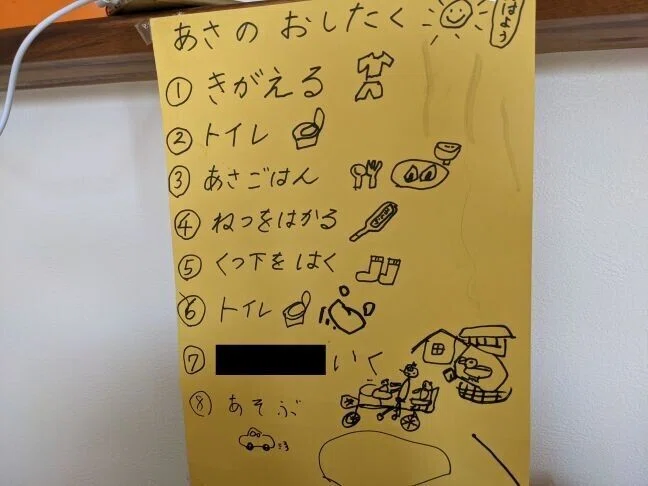 あさの おしたく
おはよう
① きがえる
② トイレ
③ あさごはん
④ ねつをはかる
⑤ くつ下を はく
⑥ トイレ
⑦ いく
⑧ あそぶ